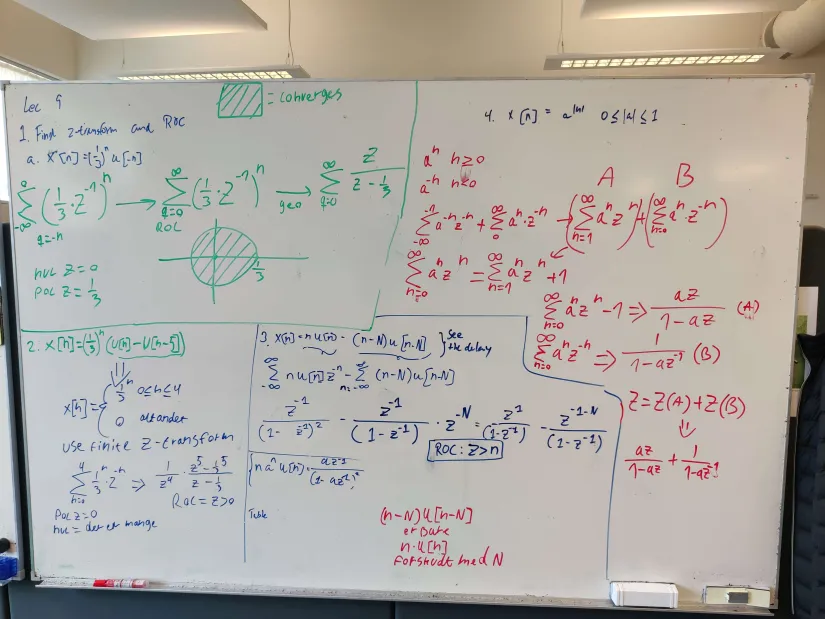 Lec 9
= converges
1. Find z-transform and ROC
a. x[n] = (1/3)^n u[-n]
∑_{-∞}^{0} (1/3 · z^{-1})^n → ∑_{q=0}^{∞} (1/3 · z^{-1})^n → ∑_{q=0}^{∞} z / (z - 1/3)
q=-n
ROC
geo
1/3
nul z = 0
pol z = 1/3
2. x[n] = (1/3)^n (u[n] - u[n-5])
x[n] = { 1/3^n 0≤n≤4
0 alt andet
use finite z-transform
∑_{n=0}^{4} 1/3^n · z^{-n} ⇒ 1/z^4 · (z^5 - 1/3^5) / (z - 1/3)
ROC = z>0
pol z=0
nul = der er mange
3. x[n] = n u[n] - (n-N) u[n-N] } see the delay
∑_{-∞}^{∞} n u[n] z^{-n} - ∑_{n=-∞}^{∞} (n-N) u[n-N]
z^{-1} / (1 - z^{-1})^2 - z^{-1} / (1 - z^{-1}) · z^{-N} = z^{-1} / (1 - z^{-1}) - z^{-1-N} / (1 - z^{-1})
ROC: z>n
{ n a^n u[n] = az^{-1} / (1 - az^{-1})^2
Table
(n-N) u[n-N]
er bare
n · u[n]
forskudt med N
4. x[n] = a^{|n|} 0≤|a|≤1
a^n n≥0
a^{-n} n<0
A B
∑_{-∞}^{-1} a^{-n} z^{-n} + ∑_{0}^{∞} a^n · z^{-n} → (∑_{n=1}^{∞} a^n z^n) + (∑_{n=0}^{∞} a^n · z^{-n})
∑_{n=0}^{∞} a^n z^n = ∑_{n=1}^{∞} a^n z^n + 1
∑_{n=0}^{∞} a^n z^n - 1 ⇒ az / (1 - az) (A)
∑_{n=0}^{∞} a^n z^{-n} ⇒ 1 / (1 - az^{-1}) (B)
Z = Z(A) + Z(B)
⇓
az / (1 - az) + 1 / (1 - az^{-1})